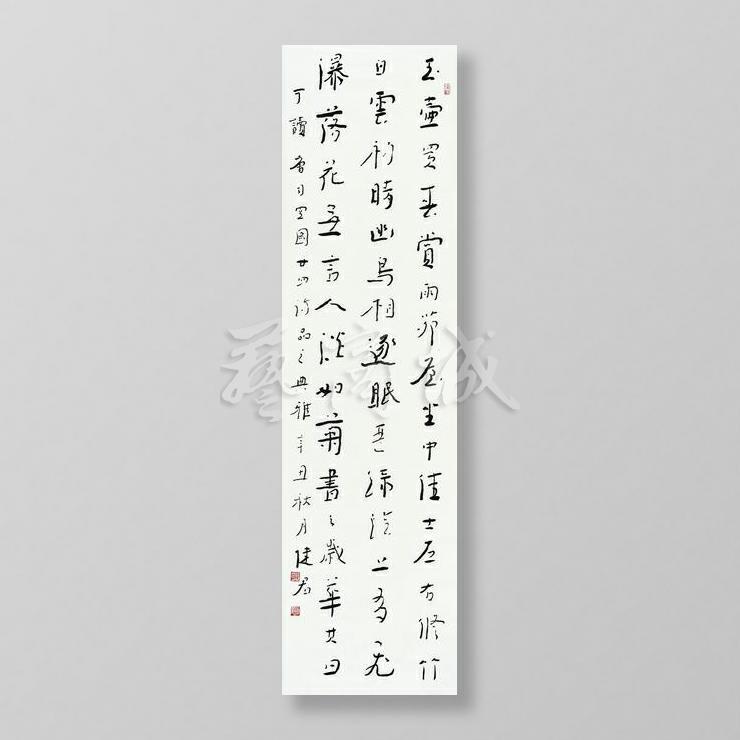 玉壺買春賞雨茆屋坐中佳士左右脩竹
白雲初晴幽鳥相逐眠琴綠陰上有飛
瀑落花無言人淡如菊書之歲華其曰
可讀 司空圖廿四詩品之典雅辛丑秋月建君
藝商城